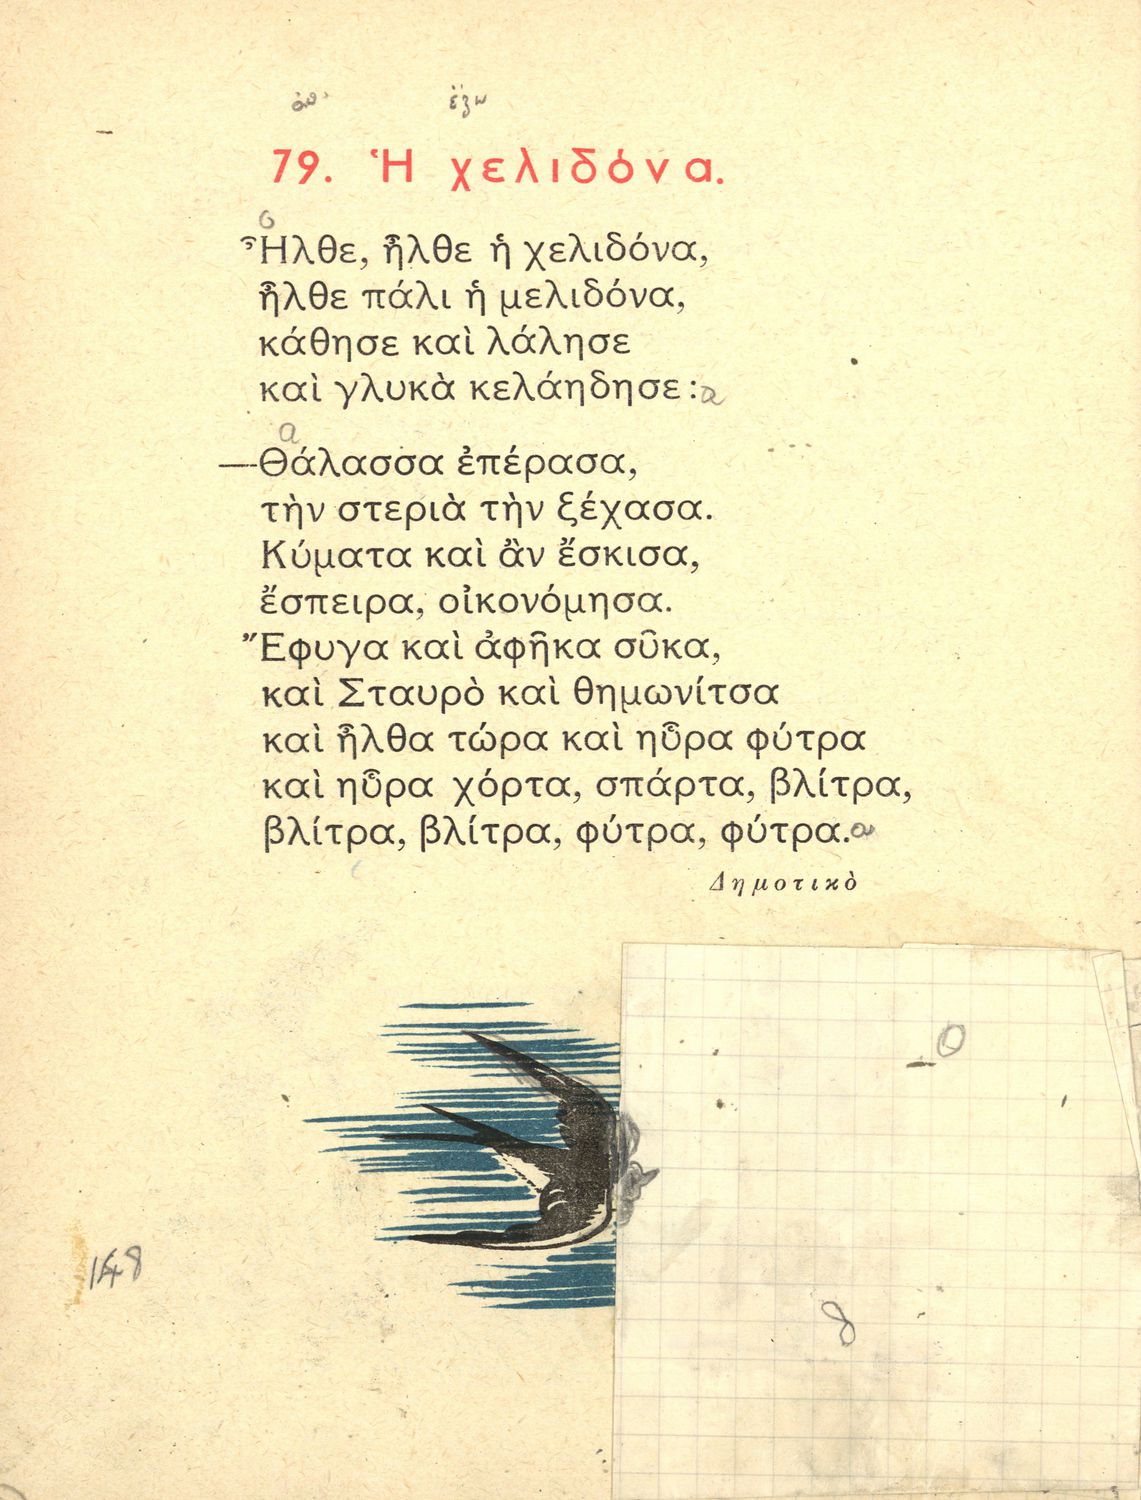 ἀπ' ἔξω
79. Ἡ χελιδόνα.
Ἦλθε, ἦλθε ἡ χελιδόνα,
ἦλθε πάλι ἡ μελιδόνα,
κάθησε καὶ λάλησε
καὶ γλυκὰ κελάηδησε: α
α
—Θάλασσα ἐπέρασα,
τὴν στεριὰ τὴν ξέχασα.
Κύματα καὶ ἂν ἔσκισα,
ἔσπειρα, οἰκονόμησα.
Ἔφυγα καὶ ἀφῆκα σῦκα,
καὶ Σταυρὸ καὶ θημωνίτσα
καὶ ἦλθα τώρα καὶ ηὗρα φύτρα
καὶ ηὗρα χόρτα, σπάρτα, βλίτρα,
βλίτρα, βλίτρα, φύτρα, φύτρα. α
Δημοτικὸ
148
8